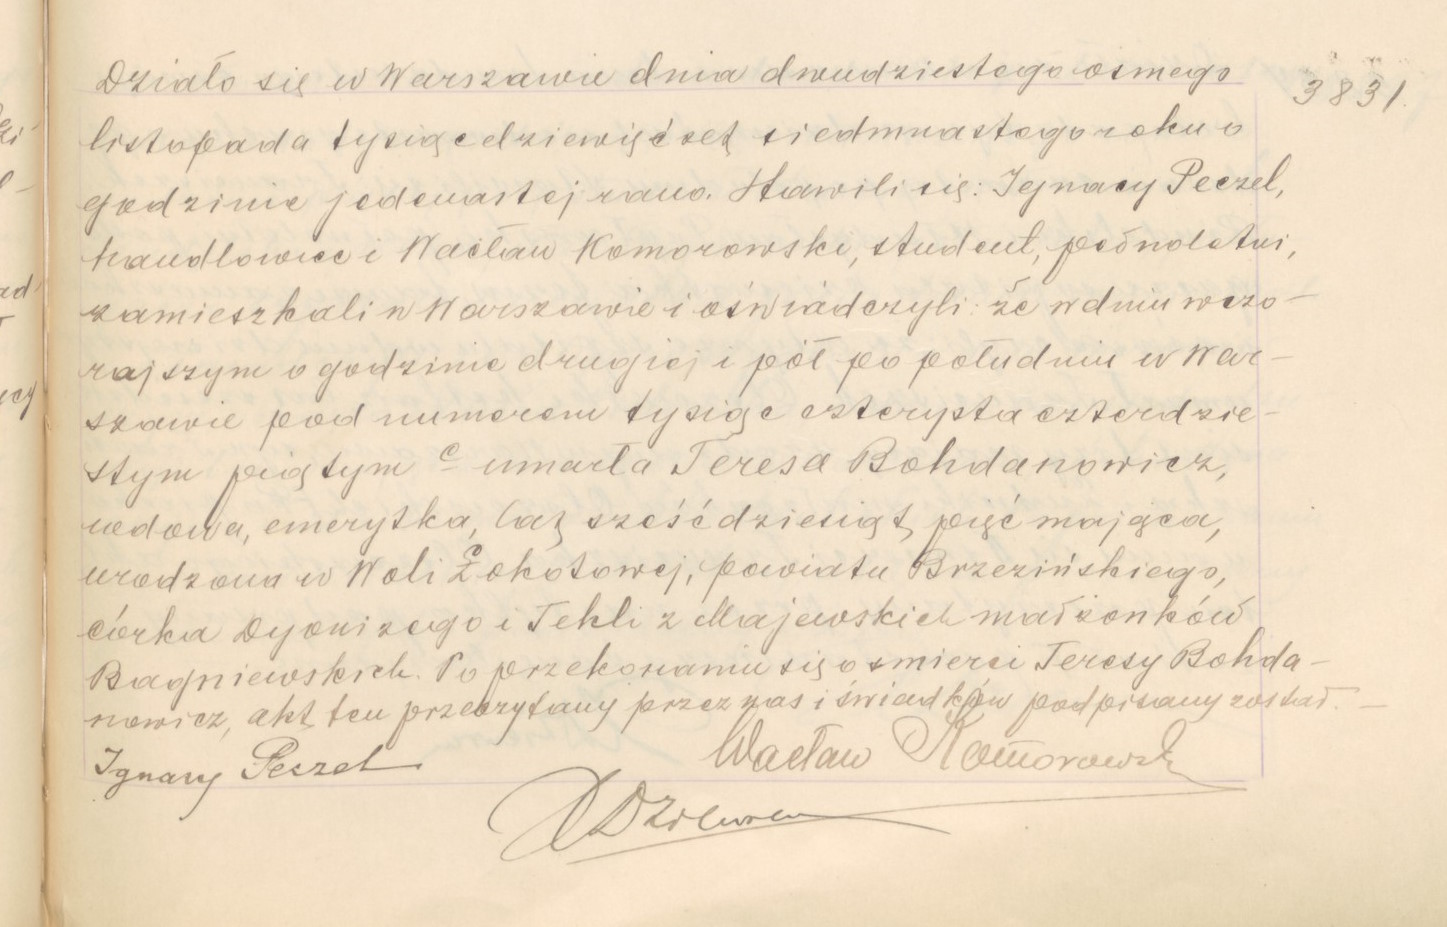 Działo się w Warszawie dnia dwudziestego osmego
3831.
listopada tysiąc dziewięćset siedmnastego roku o
godzinie jedenastej rano. Stawili się: Ignacy Peczel,
handlowiec i Wacław Komorowski, student, pełnoletni,
zamieszkali w Warszawie i oświadczyli: że w dniu wczo-
rajszym o godzinie drugiej i pół po południu w War-
szawie pod numerem tysiąc czterysta czterdzie-
stym piątym c umarła Teresa Bohdanowicz,
wdowa, emerytka, lat sześćdziesiąt pięć mająca,
urodzona w Woli powiatu Brzezińskiego,
córka Dyonizego i Tekli z Majewskich małżonków
Bagniewskich. Po przekonaniu się o śmierci Teresy Bohda-
nowicz, akt ten przeczytany przez nas i świadków podpisany został. -
Ignacy Peczel Wacław Komorowski